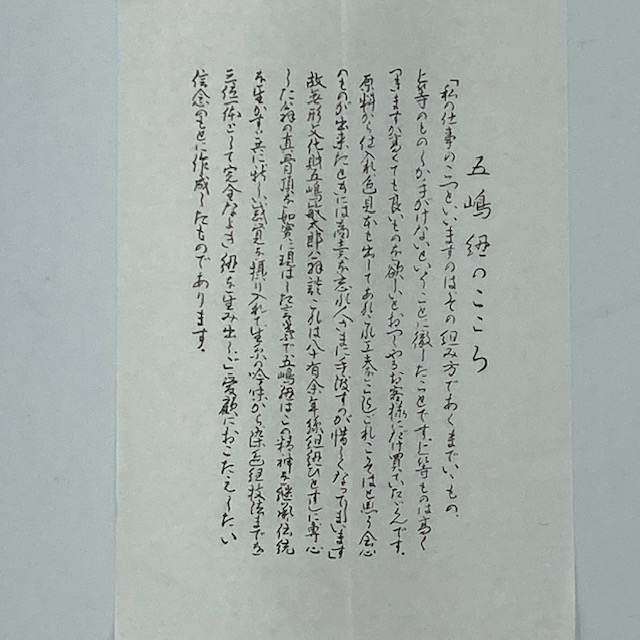 五嶋紐のこころ
「私の仕事のこつといいますのは、その組み方であくまでいいもの、
上等のものしかまがけないということに徹したことです。上等ものは高く
つきますが高くても良いものを欲しいとおっしやるお客様にだけ買っていただくんです。
原料から仕入れ色見本も出してあれこれ工夫をこらしこれこそはと思う会心
のものが出来たときには商売を忘れ人さまに手渡すのが惜しくなってしまいます」
故無形文化財五嶋敏太郎翁談 これは八十有余年絲組紐ひとすじに専心
した翁の真骨頂を如実に現はした言葉で五嶋紐はこの精神を継承伝統
を生かす共に新しい感覚を摂り入れて生糸の吟味から染色組技法までを
三位一体として完全なよき紐を生み出し、ご愛顧におこたえしたい
信念のもとに作成したものであります。